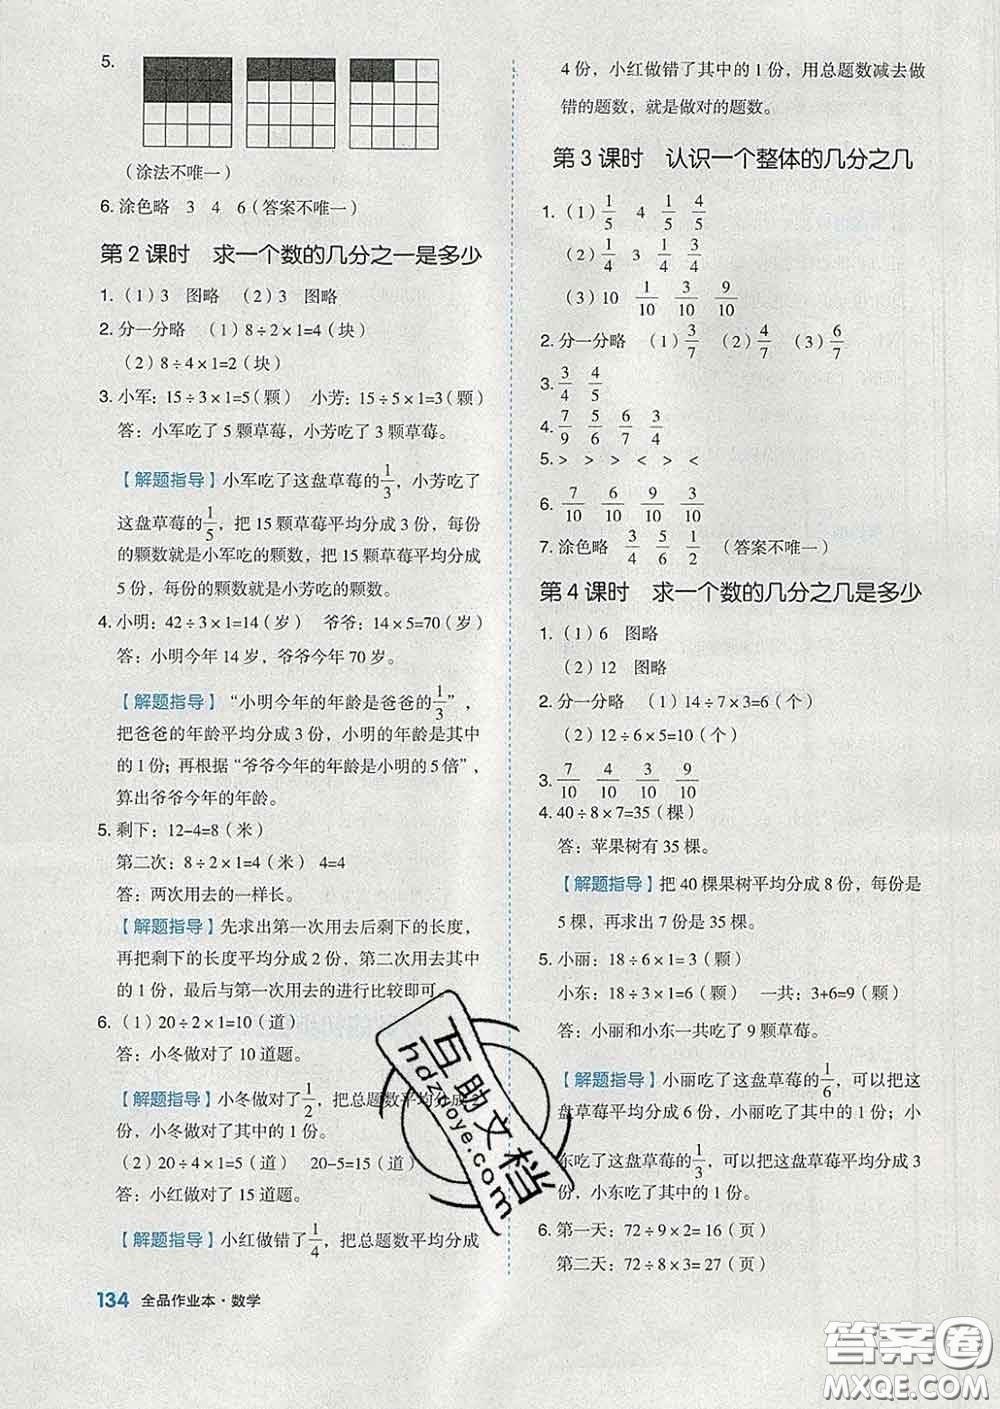 5.
(涂法不唯一)
6. 涂色略 3 4 6(答案不唯一)
第 2 课时 求一个数的几分之一是多少
1. (1)3 图略 (2)3 图略
2. 分一分略 (1)8÷2×1=4(块)
(2)8÷4×1=2(块)
3. 小军:15÷3×1=5(颗) 小芳:15÷5×1=3(颗)
答:小军吃了 5 颗草莓,小芳吃了 3 颗草莓。
【解题指导】小军吃了这盘草莓的1/3,小芳吃了
这盘草莓的1/5,把 15 颗草莓平均分成 3 份,每份
的颗数就是小军吃的颗数,把 15 颗草莓平均分成
5 份,每份的颗数就是小芳吃的颗数。
4. 小明:42÷3×1=14(岁) 爷爷:14×5=70(岁)
答:小明今年 14 岁,爷爷今年 70 岁。
【解题指导】“小明今年的年龄是爸爸的1/3”,
把爸爸的年龄平均分成 3 份,小明的年龄是其中
的 1 份;再根据“爷爷今年的年龄是小明的 5 倍”,
算出爷爷今年的年龄。
5. 剩下:12-4=8(米)
第二次:8÷2×1=4(米) 4=4
答:两次用去的一样长。
【解题指导】先求出第一次用去后剩下的长度,
再把剩下的长度平均分成 2 份,第二次用去其中
的 1 份,最后与第一次用去的进行比较即可
6. (1)20÷2×1=10(道)
答:小冬做对了 10 道题。
【解题指导】小冬做对了1/2,把总题数平均分成
份,小冬做对了其中的 1 份。
(2)20÷4×1=5(道) 20-5=15(道)
答:小红做对了 15 道题。
【解题指导】小红做错了1/4,把总题数平均分成
134 全品作业本·数学
4 份,小红做错了其中的 1 份,用总题数减去做
错的题数,就是做对的题数。
第 3 课时 认识一个整体的几分之几
1. (1)1/5 4 1/5 4/5
(2)1/4 3 1/4 3/4
(3)10 1/10 3/10 9/10
2. 分一分略 (1)3/7 (2)4/7 (3)6/7
3. 3/4 4/5
4. 7/9 5/6 6/7 3/4
5. > > > < > <
6. 7/10 6/10 9/10 3/10
7. 涂色略 3/4 5/6 1/2 (答案不唯一)
第 4 课时 求一个数的几分之几是多少
1. (1)6 图略
(2)12 图略
2. 分一分略 (1)14÷7×3=6(个)
(2)12÷6×5=10(个)
3. 7/10 4/10 3/10 9/10
4. 40÷8×7=35(棵)
答:苹果树有 35 棵。
【解题指导】把 40 棵果树平均分成 8 份,每份是
5 棵,再求出 7 份是 35 棵。
5. 小丽:18÷6×1= 3(颗)
小东:18÷3×1=6(颗) 一共:3+6=9(颗)
答:小丽和小东一共吃了 9 颗草莓。
【解题指导】小丽吃了这盘草莓的1/6,可以把这
盘草莓平均分成 6 份,小丽吃了其中的 1 份;小
东吃了这盘草莓的1/3,可以把这盘草莓平均分成 3
份,小东吃了其中的 1 份。
6. 第一天:72÷9×2= 16(页)
第二天:72÷8×3= 27(页)
互助文档
hdzuoye.com
答案圈
MXQE.COM